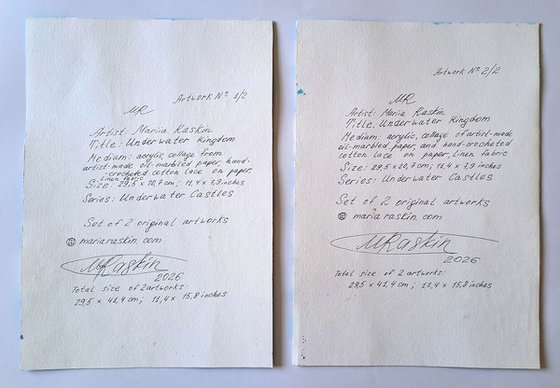 Artwork Nº 1/2
MR
Artist: Mariia Raskin
Title: Underwater Kingdom
Medium: acrylic, collage from
artist-made oil-marbled paper, hand-
-crocheted cotton lace on paper,
linen fabric
Size: 29,5 x 20,7 cm; 11,4 x 7,9 inches
Series: Underwater Castles
Set of 2 original artworks
mariaraskin.com
MRaskin
2026
Total size of 2 artworks:
29,5 x 41,4 cm; 11,4 x 15,8 inches
Artwork Nº 2/2
MR
Artist: Mariia Raskin
Title: Underwater Kingdom
Medium: acrylic, collage of artist-made
oil-marbled paper, and hand-crocheted
cotton lace on paper, linen fabric
Size: 29,5 x 20,7 cm; 11,4 x 7,9 inches
Series: Underwater Castles
Set of 2 original artworks
mariaraskin.com
MRaskin
2026
Total size of 2 artworks:
29,5 x 41,4 cm; 11,4 x 15,8 inches